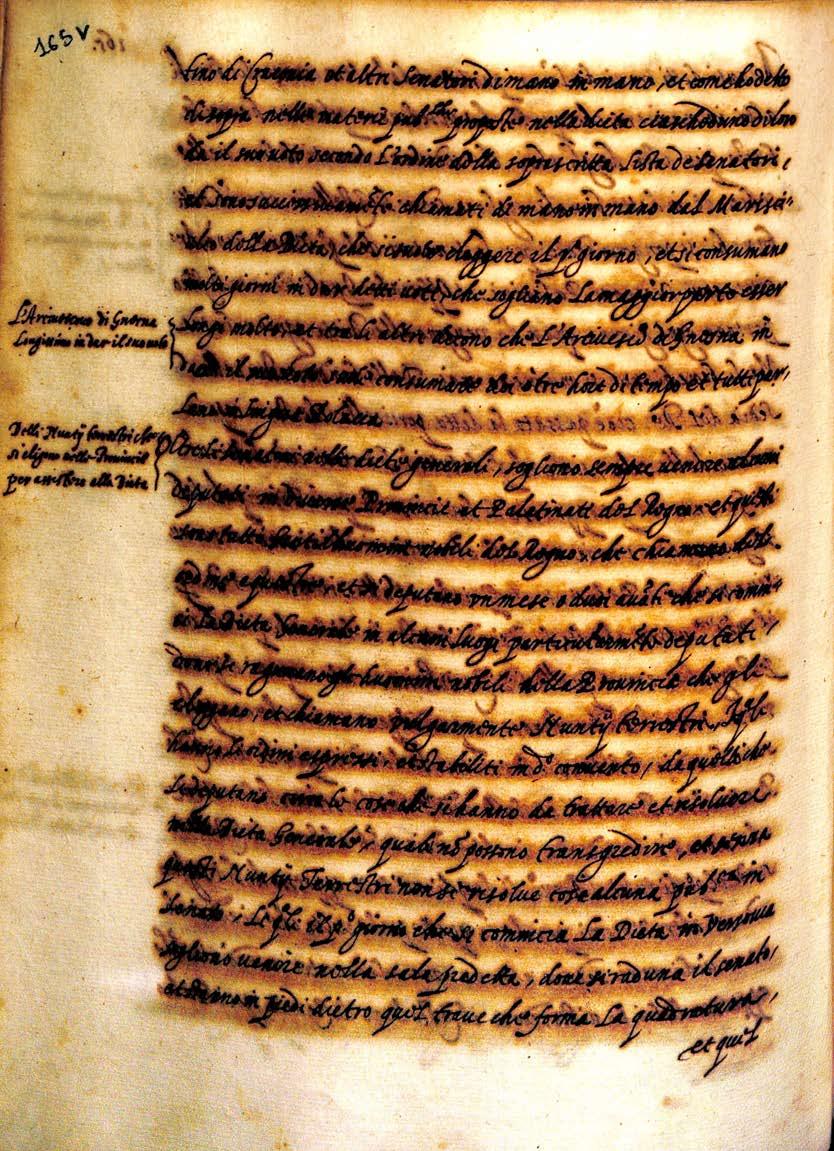 165v
tino di Cracovia et altri Senatori di mano in mano, et come ho detto
di sopra nelle materie pub.che proposte nella dieta ciascheduno di loro
dà il suo voto secondo L'ordine della soprascritta Lista de Senatori,
et sono chiamati di mano in mano dal Marisci-
alco della Dieta, che si suole eleggere il p.o giorno, et si consumano
molti giorni in dar detti voti, che sogliono La maggior parte esser
Longhi molto, et tra li altri dicono che L'Arcivesco di Gnesna in
dare il suo voto suole consumare doi o tre hore di tempo et tutti par,
Lano in lingua Polacca
L'Arcivescovo di Gnesna
Longissimo in dar il suo voto
Delli Nuntÿ terrestri che
si eligono nelle Provincie
per assistere alla Dieta
Oltre li Senatori nelle diete generali, sogliono sempre venire alcuni
deputati in diverse Provincie et Palatinati del Regno, et questi
sono tutti huomini nobili del Regno, che chiamano dell'
ordine equestre, et si deputano un mese o duoi avāti che si comin-
ci La Dieta Generale in alcuni Luogi particularmēte deputati,
dove si ragunano gli huomini nobili della Provincie che gli
eleggono, et chiamano vulgarmente Nuntÿ terrestri, I q.li
hanno Le ordini espressi, et stabiliti in d.o convento, da quelli che
Li deputano circa le cose che si hanno da trattare et risolvere
nella Dieta Generale, quale nō possono transgredire, et senza
questi Nuntÿ Terrestri non si risolve cosa alcuna pub.ca in
Senato, Li q.li il p.o giorno che si comincia La Dieta in
sogliono venire nella sala predetta, dove si raduna il senato,
et stanno in piedi dietro quel trave che forma La quadratura,
et quel